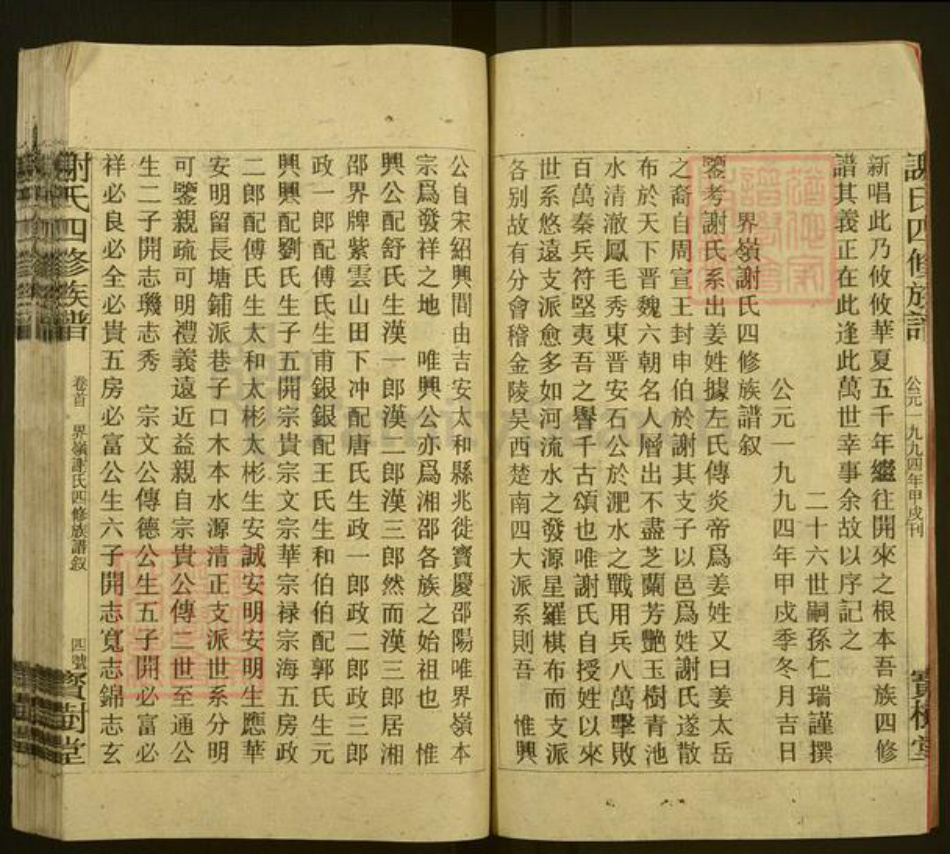 謝氏四修族譜 公元一九九四年甲戌刊 寶樹堂
新唱此乃攸攸華夏五千年繼往開來之根本吾族四修
譜其義正在此逢此萬世幸事余故以序記之
二十六世嗣孫仁瑞謹撰
公元一九九四年甲戌季冬月吉日
界嶺謝氏四修族譜叙
鑒考謝氏系出姜姓據左氏傳炎帝爲姜姓又曰姜太岳
之裔自周宣王封申伯於謝其支子以邑爲姓謝氏遂散
布於天下晋魏六朝名人層出不盡芝蘭芳艷玉樹青池
水清澈鳳毛秀東晋安石公於淝水之戰用兵八萬擊敗
百萬秦兵符堅夷吾之譽千古頌也唯謝氏自授姓以來
世系悠遠支派愈多如河流水之發源星羅棋布而支派
各别故有分會稽金陵吴西楚南四大派系則吾 惟興
公自宋紹興間由吉安太和縣兆徙寳慶邵陽唯界嶺本
宗爲發祥之地 唯興公亦爲湘邵各族之始祖也 惟
興公配舒氏生漢一郎漢二郎漢三郎然而漢三郎居湘
邵界牌紫雲山田下冲配唐氏生政一郎政二郎政三郎
政一郎配傅氏生甫銀銀配王氏生和伯伯配郭氏生元
興興配劉氏生子五開宗貴宗文宗華宗禄宗海五房政
二郎配傅氏生太和太彬太彬生安誠安明安明生應華
安明留長塘鋪派巷子口木本水源清正支派世系分明
可鑒親疏可明禮義遠近益親自宗貴公傳二世至通公
生二子開志璣志秀 宗文公傳德公生五子開必富必
祥必良必全必貴五房必富公生六子開志寬志錦志玄
謝氏四修族譜 卷首 界嶺謝氏四修族譜叙 四號 寶樹堂